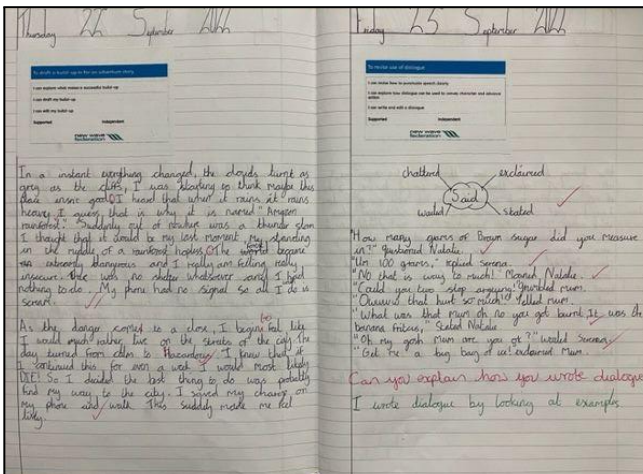 Thursday 22 September 2022
To draft a build-up in for an adventure story
I can explain what makes a successful build-up
I can draft my build-up
I can edit my build-up
Supported Independent
new wave
federation
In a instant everything changed, the clouds turnt as
grey as the cliffs, I was starting to think maybe this
place insnt good. I heard that when it rains it rains
heavy I guess that is why it is named "Amazon
rainforest". Suddenly out of nowhere was a thunder storm
I thought that it would be my last moment standing
in the middle of a rainforest hopless. The forest became
dangerous and I really am feeling really
insecure. there was no shelter whatsoever and I had
nothing to do. My phone had no signal so all I do is
scream.
As the danger comes to a close, I begin to feel like
I would much rather live on the streets of the city. The
day turned from calm to Hazardous. I knew that if
I continued this for even a week I would most likely
DIE! So I decided the best thing to do was probably
find my way to the city. I saved my charge on
my phone and walk. This suddely made me feel
likey.
Friday 23 September 2022
To revise use of dialogue
I can revise how to punctuate speech clearly
I can explore how dialogue can be used to convey character and advance
action
I can write and edit a dialogue
Supported Independent
new wave
federation
chattered exclaimed
Said
wailed stated
"How many grams of Brown sugar did you measure
in?" questioned Natalie.
"Um 100 grams," replied serena.
"No that is way to much!" Moaned Natalie.
"Could you two stop arguing! grumbled mum.
"Owwww that hurt so much!" Yelled mum.
"What was that Mum oh no you got burnt. It was the
banana fritters," Stated Natalie
"Oh my gosh Mum are you ok?" wailed Serena.
"Get me a bug bag of ice! exclaimed Mum.
Can you explain how you wrote dialogue
I wrote dialogue by looking at examples.